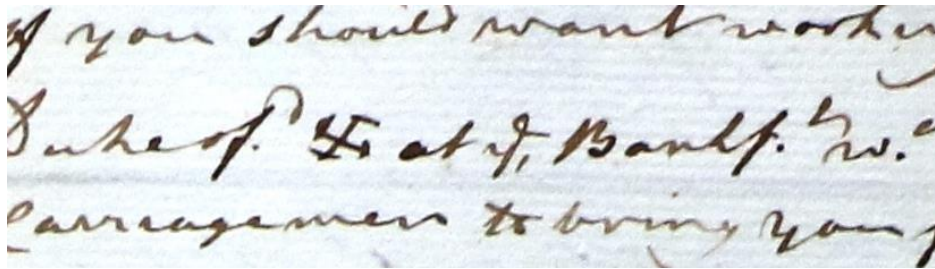 If you should want work
Duke of. & at ye, Bankf.t w.d
Carriagemen to bring you